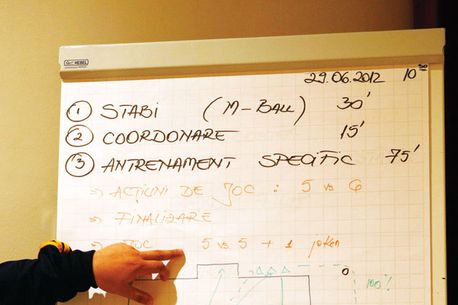 29.06.2012 10³⁰
① STABI (M-BALL) 30'
② COORDONARE 15'
③ ANTRENAMENT SPECIFIC 75'
⇒ ACȚIUNI DE JOC : 5 vs 6
⇒ FINALIZARE
⇒ JOC 5 vs 5 + 1 joker
100'